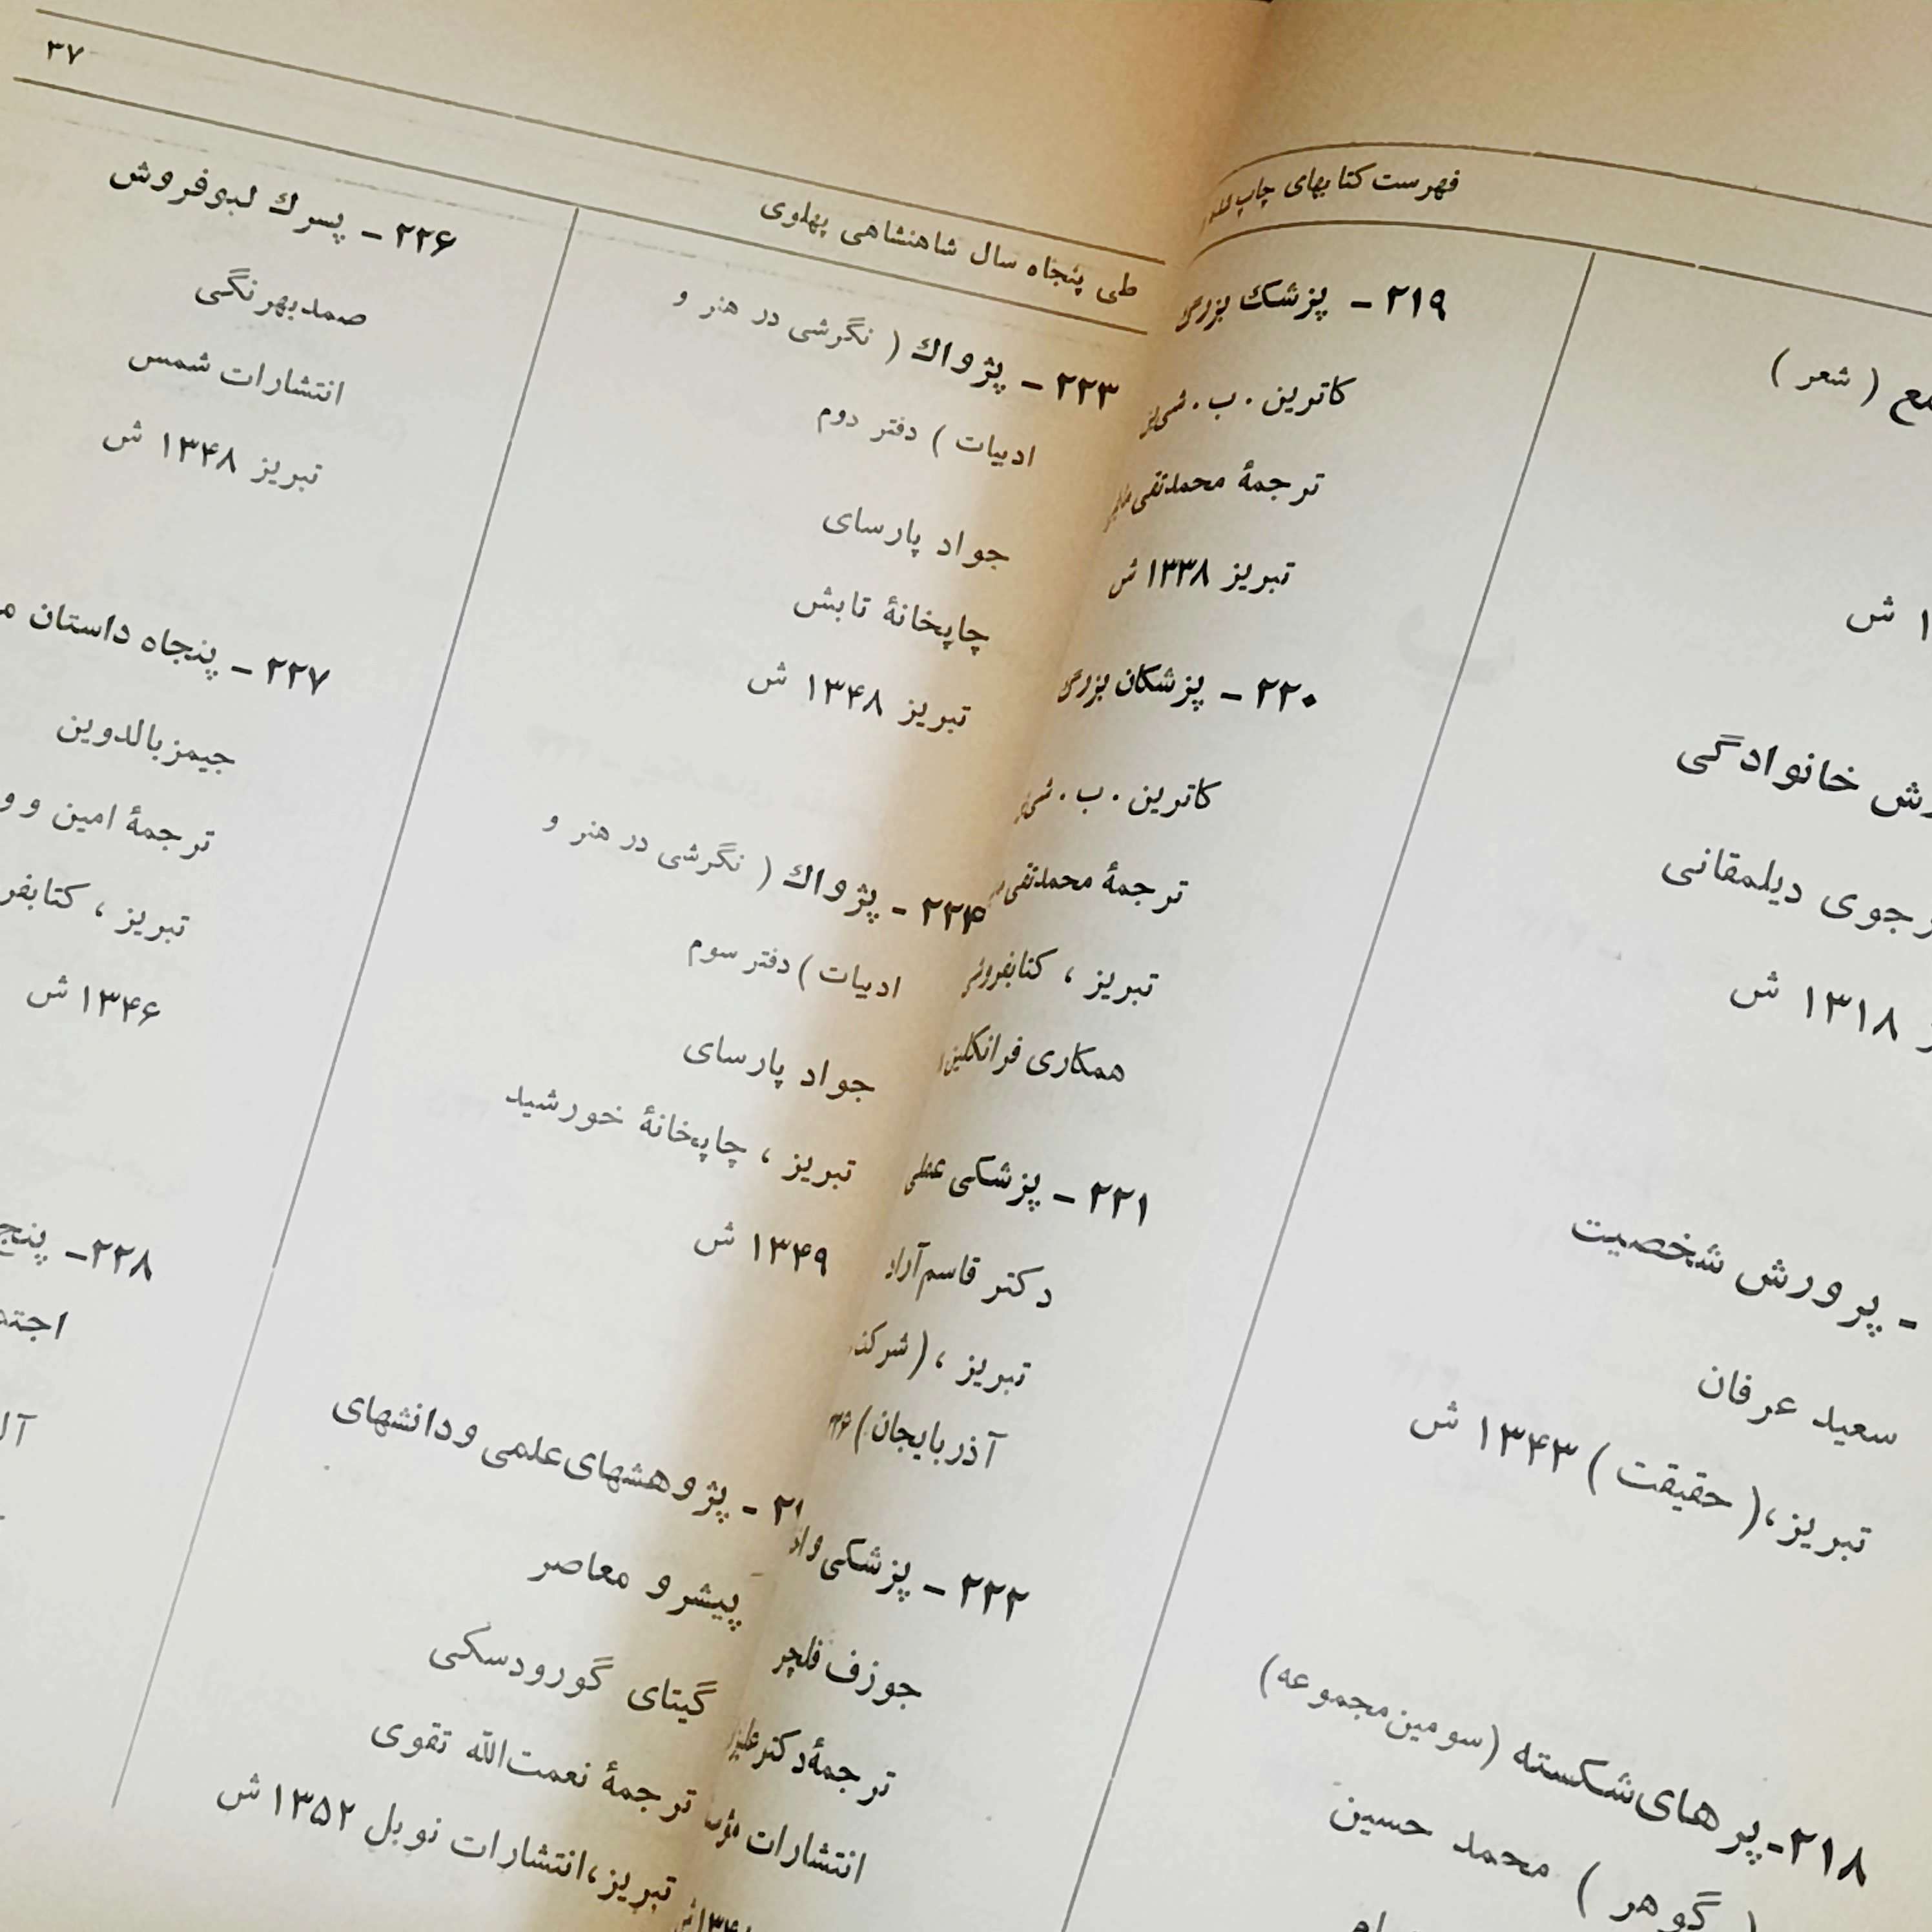 فهرست کتابهای چاپ
شعر )
ش
خانوادگی
جوی دیلمقانی
۱۳۱۸ ش
- پرورش شخصیت
سعید عرفان
تبریز،( حقیقت ) ۱۳۴۳ ش
۲۱۸-پرهای‌شکسته (سومین‌مجموعه)
( گوهر ) محمد حسین
۲۱۹ - پزشک بزرگ
کاترین . ب .
ترجمهٔ محمدتقی
تبریز ۱۳۳۸ ش
۲۲۰ - پزشکان بزرگ
کاترین . ب .
ترجمهٔ محمدتقی
تبریز ، کتابفروشی
همکاری فرانکلین
۲۲۱ - پزشکی عملی
دکتر قاسم
تبریز ، (
آذربایجان )
۲۲۲ - پزشکی
جوزف فلچر
ترجمهٔ دکتر
انتشارات
۳۷
طی پنجاه سال شاهنشاهی پهلوی
۲۲۳ - پژواك ( نگرشی در هنر و
ادبیات ) دفتر دوم
جواد پارسای
چاپخانهٔ تابش
تبریز ۱۳۴۸ ش
۲۲۴ - پژواك ( نگرشی در هنر و
ادبیات ) دفتر سوم
جواد پارسای
تبریز ، چاپخانهٔ خورشید
۱۳۴۹ ش
- پژوهشهای‌علمی و دانشهای
پیشرو معاصر
گیتای گورودسکی
ترجمهٔ نعمت‌الله تقوی
تبریز،انتشارات نوبل ۱۳۵۲ ش
۲۲۶ - پسرك لبوفروش
صمدبهرنگی
انتشارات شمس
تبریز ۱۳۴۸ ش
۲۲۷ - پنجاه داستان
جیمزبالدوین
ترجمهٔ امین و
تبریز ،
۱۳۴۶ ش
۲۲۸-